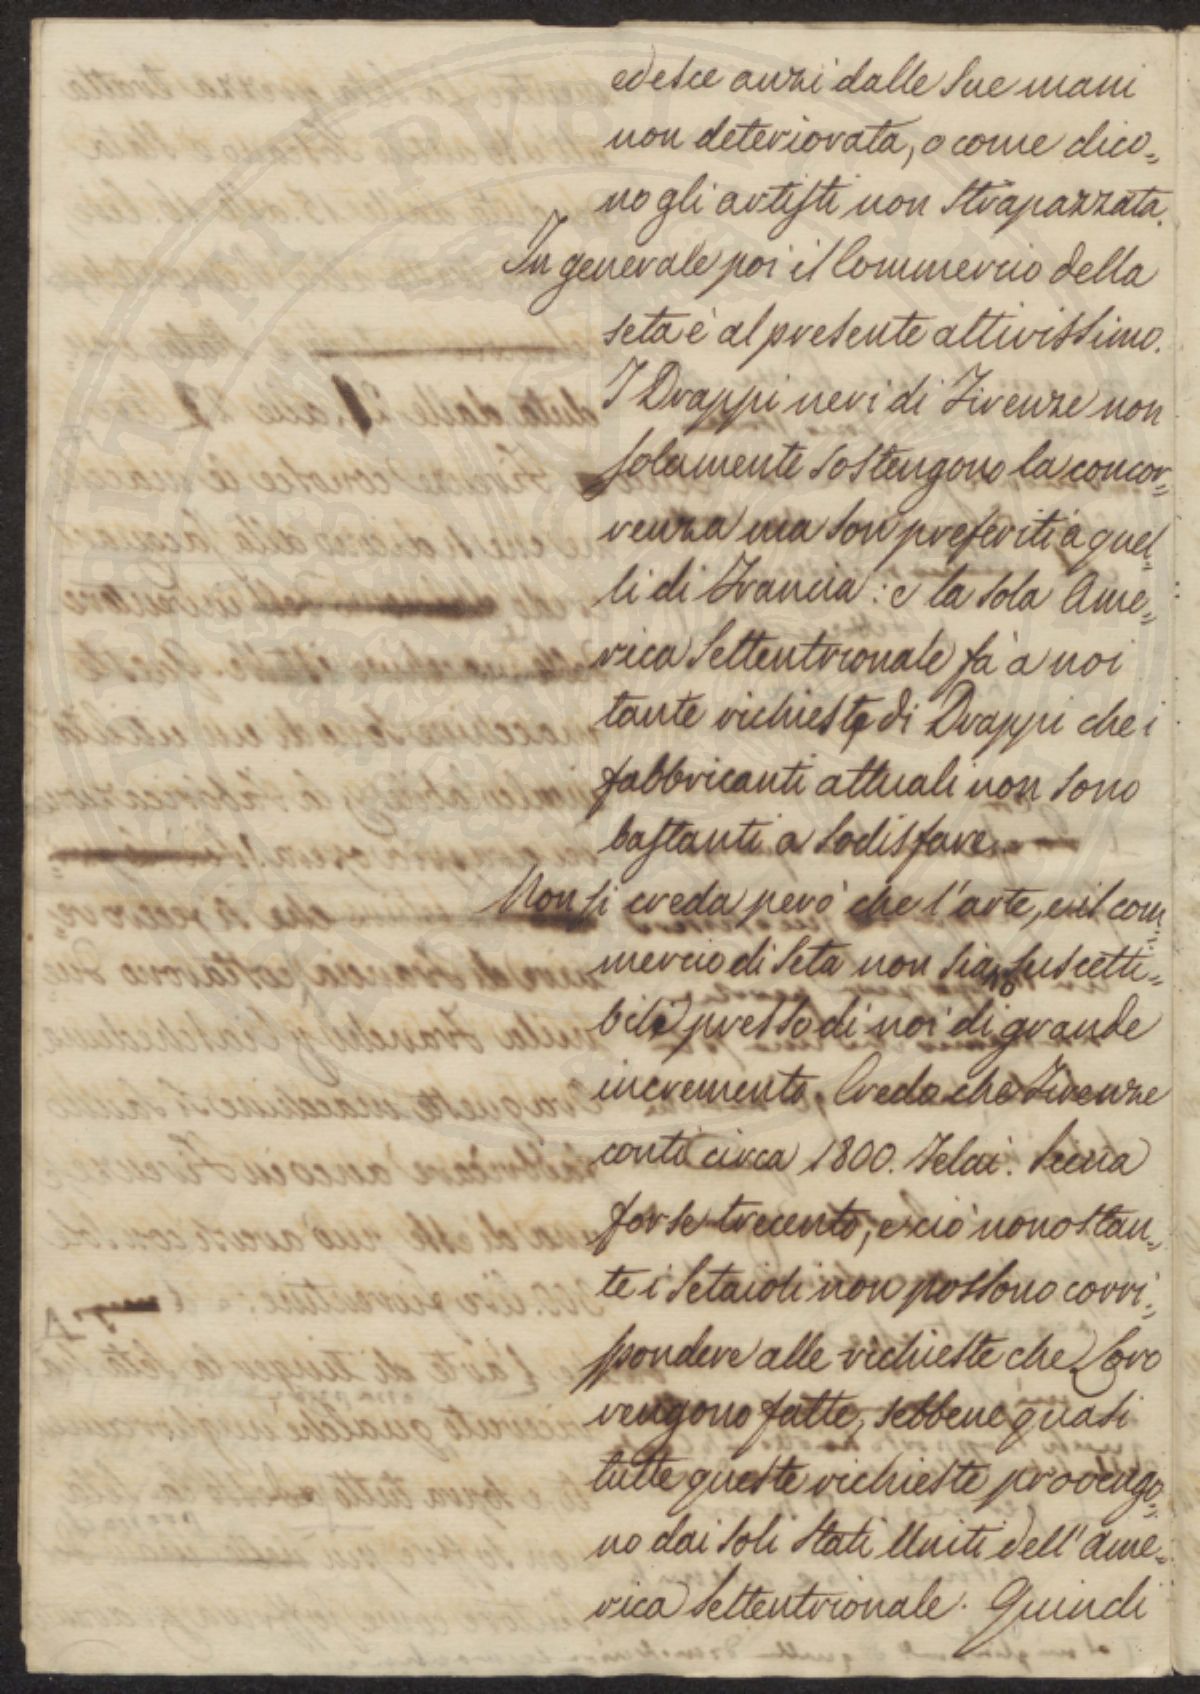 ed esce anzi dalle sue mani
non deteriorata, o come dico=
no gli artisti non strapazzata.
In generale poi il Commercio della
seta è al presente attivissimo.
I Drappi neri di Firenze non
solamente sostengono la concor=
renza ma son preferiti a quel=
li di Francia: e la sola Ame=
rica Settentrionale fà a noi
tante richieste di Drappi che i
fabbricanti attuali non sono
bastanti a sodisfare.
Non si creda però che l'arte, e il com=
mercio di Seta non siano suscetti=
bili presso di noi di grande
incremento. Credo che Firenze
conti circa 1800. Telai. Siena
forse trecento, e ciò nonostan=
te i Setaioli non possono corri=
spondere alle richieste che Loro
vengono fatte, sebbene quasi
tutte queste richieste provengo=
no dai soli Stati Uniti dell'Ame=
rica Settentrionale. Quindi